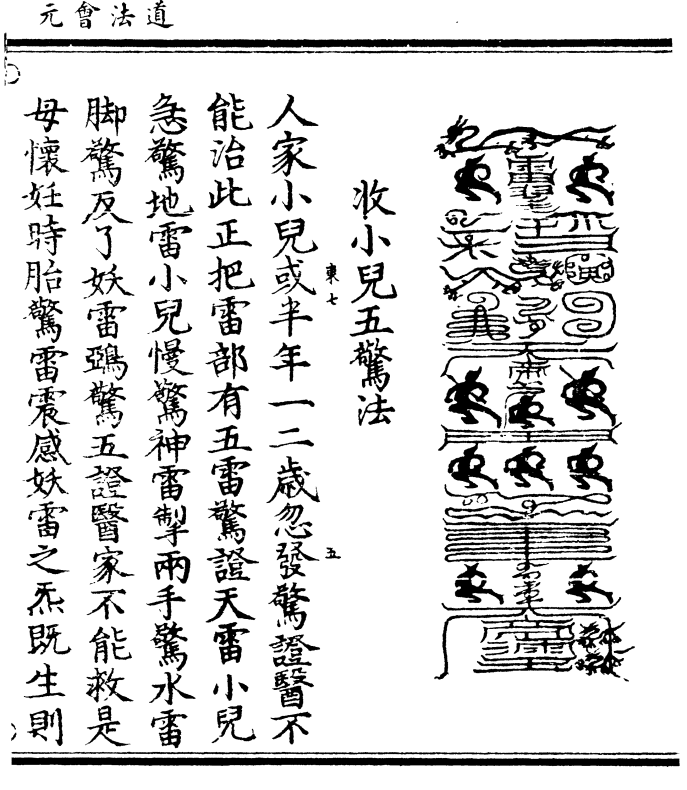 道法會元
收小兒五驚法
人家小兒或半年一二歲忽發驚證醫不
東七
五
能治此正把雷部有五雷驚證天雷小兒
急驚地雷小兒慢驚神雷掣兩手驚水雷
脚驚反了妖雷鵶驚五證醫家不能救是
母懷妊時胎驚雷震感妖雷之炁既生則